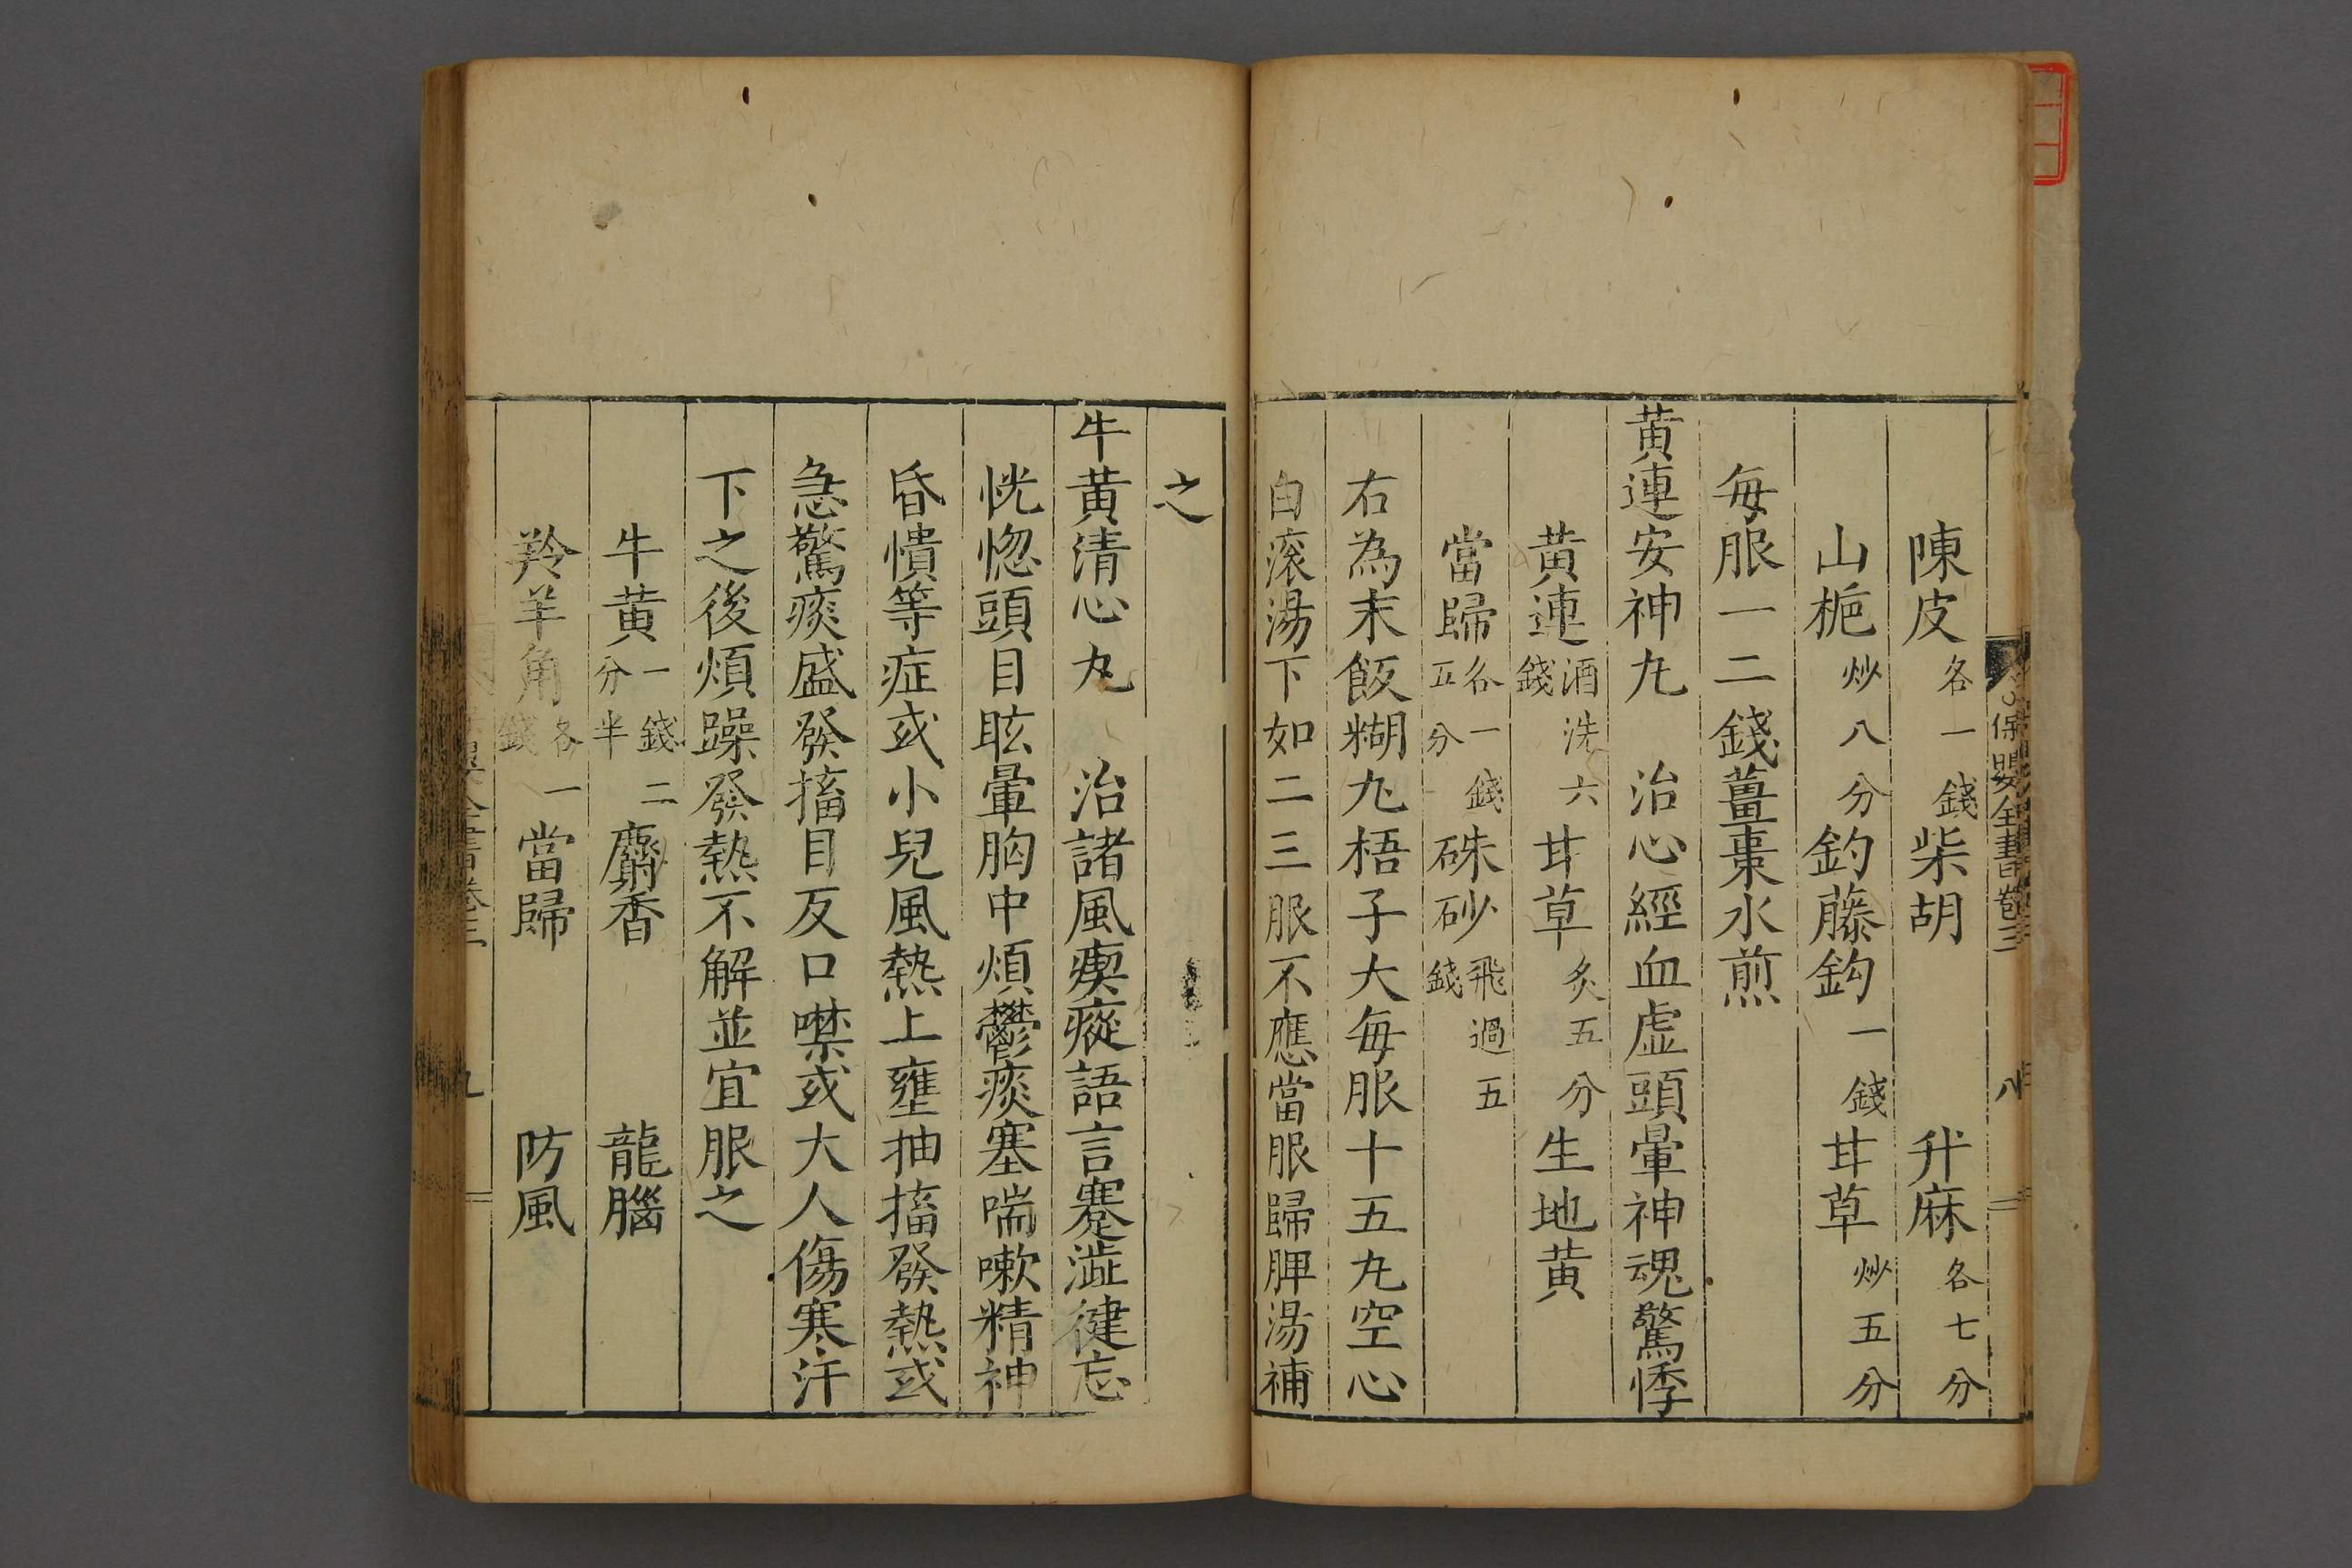 陳皮各一錢柴胡 升麻各七分
山梔炒八分釣藤鈎一錢甘草炒五分
每服一二錢薑棗水煎
黄連安神丸 治心經血虚頭暈神魂驚悸
黄連酒洗六錢甘草炙五分生地黄
當歸各一錢五分硃砂飛過五錢
右為末飯糊丸梧子大每服十五丸空心
白滚湯下如二三服不應當服歸脾湯補
保嬰全書卷三 八
之
牛黄清心丸 治諸風瘈瘲語言蹇澁健忘
恍惚頭目眩暈胸中煩鬱痰塞喘嗽精神
昏憒等症或小兒風熱上壅抽搐發熱或
急驚痰盛發搐目反口噤或大人傷寒汗
下之後煩躁發熱不解並宜服之
牛黄一錢二分半麝香 龍腦
羚羊角各一錢當歸 防風
全書卷三 九